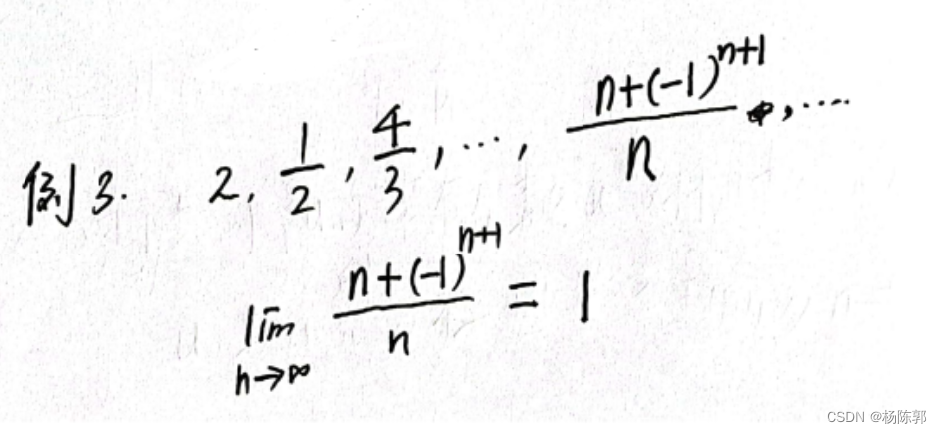 例3. 2, 1/2, 4/3, …, (n+(-1)^(n+1))/n, ….
lim n→∞ (n+(-1)^(n+1))/n = 1
CSDN @杨陈郭